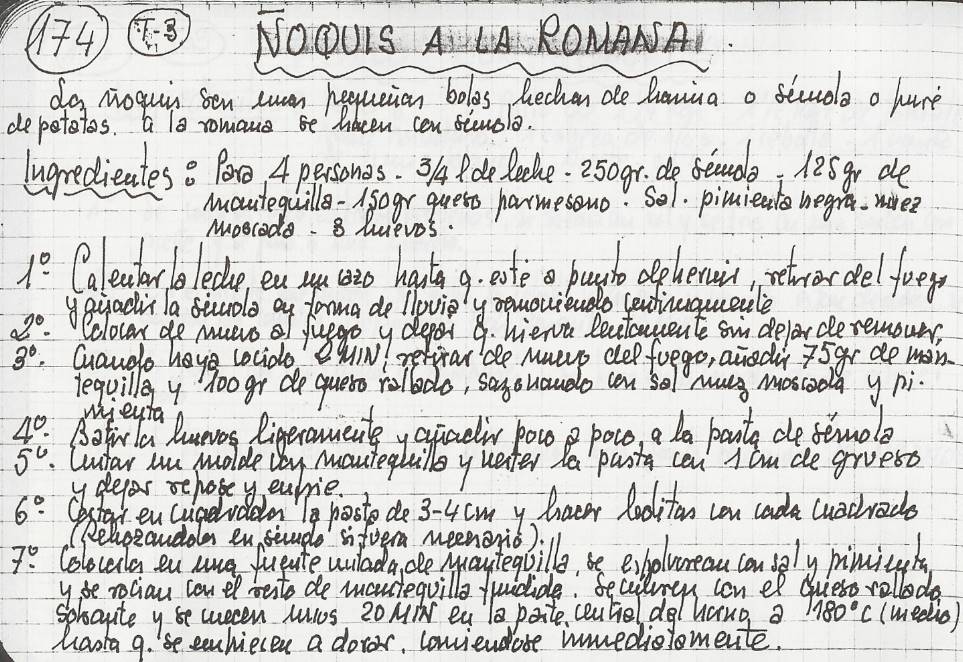 174 T-3 ÑOQUIS A LA ROMANA.
Los ñoquis son unas pequeñas bolas, hechas de harina o sémola o puré
de patatas. a la romana se hacen con sémola.
Ingredientes: Para 4 personas - 3/4 l de leche - 250gr. de sémola - 125 gr de
mantequilla - 150gr queso parmesano. Sal. pimienta negra. nuez
moscada - 3 huevos.
1º- Calentar la leche, en un cazo hasta q. esté a punto de hervir, retirar del fuego
y añadir la sémola en forma de lluvia y removiendo continuamente
2º- Colocar de nuevo al fuego y dejar q. hierva lentamente sin dejar de remover,
3º- Cuando haya cocido MIN, retirar de nuevo del fuego, añadir 75gr de man-
tequilla, y 100 gr de queso rallado, sazonando con sal nuez moscada y pi-
mienta
4º- Batir los huevos ligeramente y añadir poco a poco, a la pasta de sémola
5º- Untar un molde con mantequilla y verter la pasta con 1 cm de grueso
y dejar repose y enfrie.
6º- Cortar en cuadrados la pasta de 3-4 cm y hacer bolitas con cada cuadrado
(Rebozandolas en sémola si fuera necesario).
7º- Colocarlos en una fuente untada, de mantequilla, se espolvorean con sal y pimienta,
y se rocian con el resto de mantequilla fundida. Se cubren con el queso rallado
sobrante y se cuecen unos 20 MIN en la parte central del horno a 180°C (medio)
hasta q. se empiecen a dorar, comiendose inmediatamente.